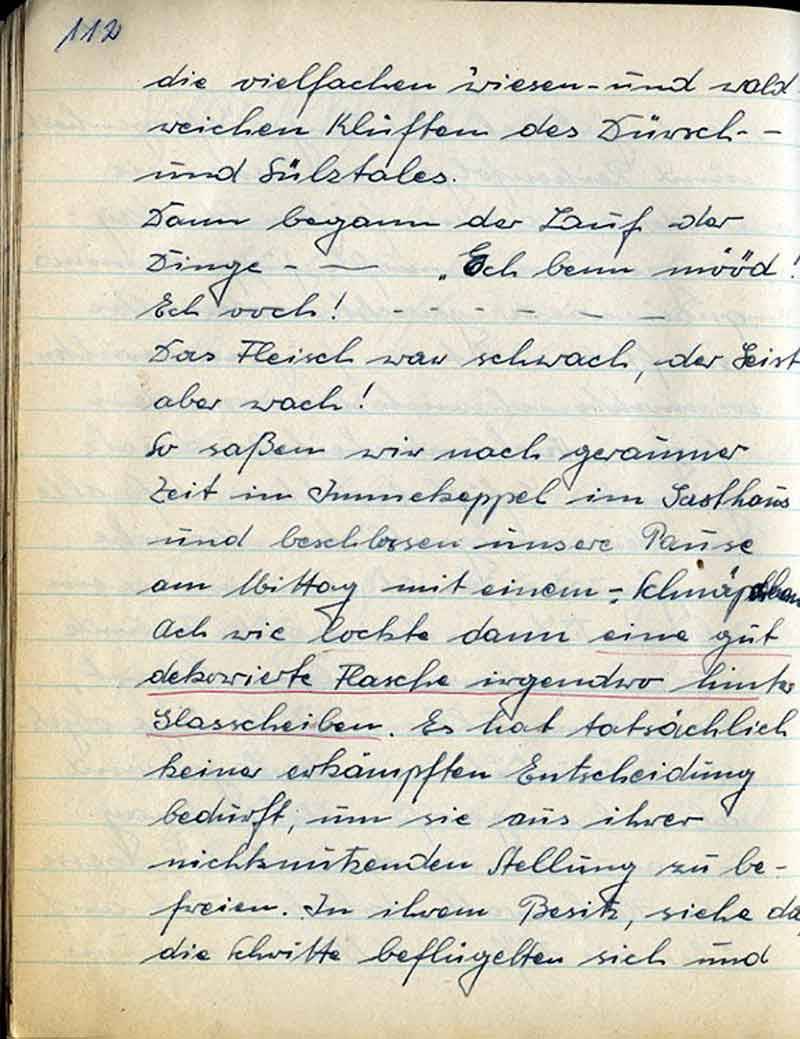 112
die vielfachen wiesen- und wald
weichen Klüften des Dürsch-
und Sülztales.
Dann begann der Lauf der
Dinge - — „Ech benn mööd!
Ech och! - - - - - —
Das Fleisch war schwach, der Geist
aber wach!
So saßen wir nach geraumer
Zeit in Immekeppel im Gasthaus
und beschlossen unsere Pause
am Mittag mit einem -
Ach wie lockte dann eine gut
dekorierte Flasche irgendwo hinter
Glasscheiben. Es hat tatsächlich
keiner erkämpften Entscheidung
bedurft, um sie aus ihrer
nichtsnützenden Stellung zu be-
freien. In ihrem Besitz, siehe da,
die Schritte beflügelten sich und